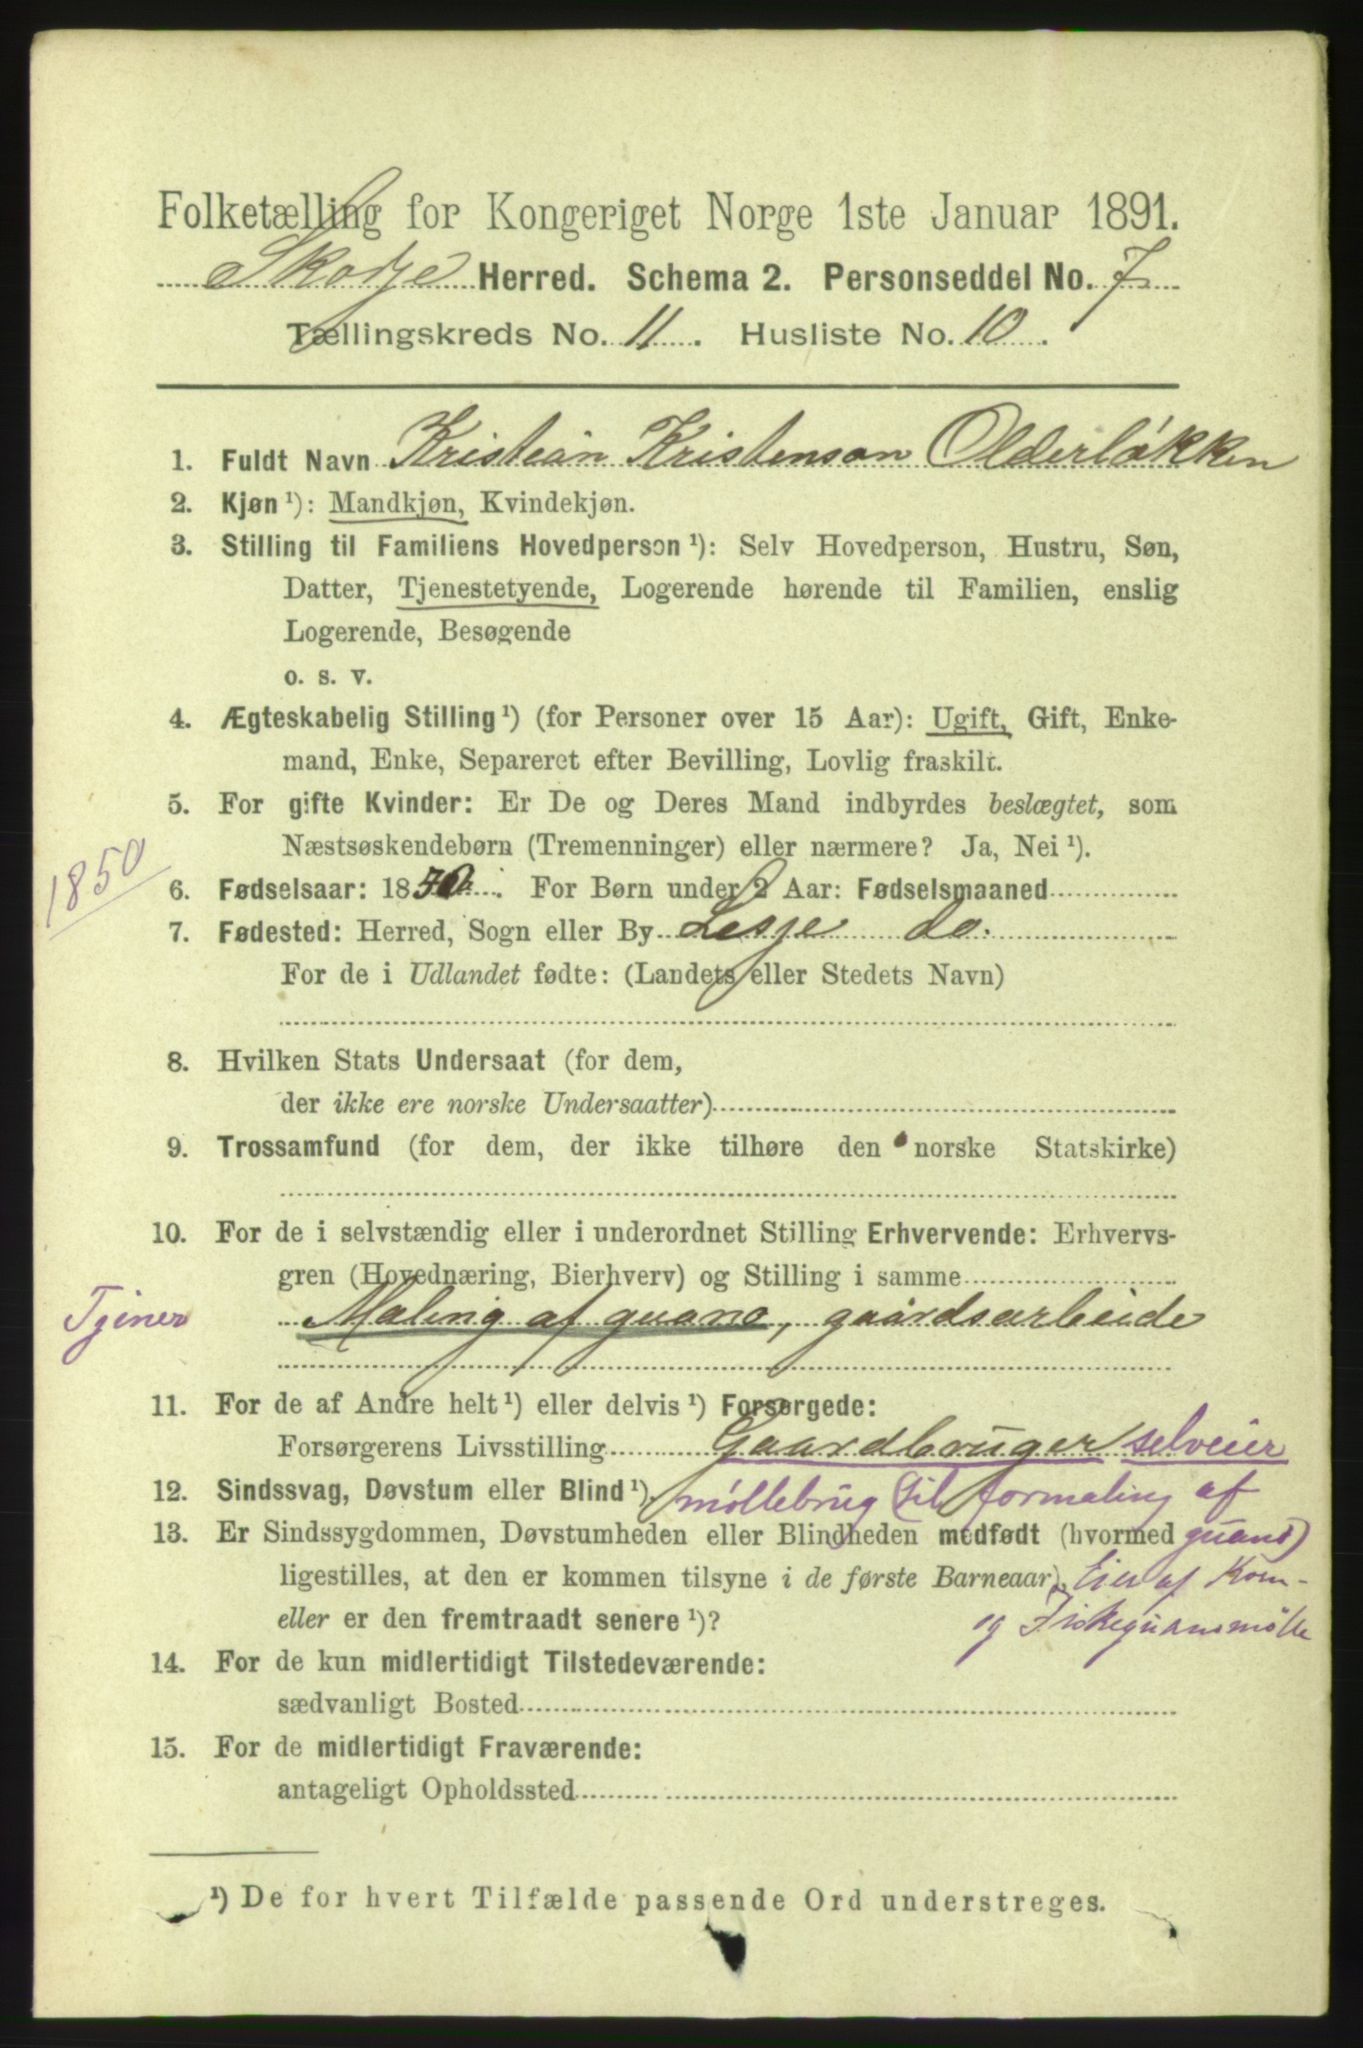 Folketælling for Kongeriget Norge 1ste Januar 1891.
Skodje Herred. Schema 2. Personseddel No. 7
Tællingskreds No. 11. Husliste No. 10.
1. Fuldt Navn Kristian Kristenson Olderløkken
2. Kjøn ¹): Mandkjøn, Kvindekjøn.
3. Stilling til Familiens Hovedperson ¹): Selv Hovedperson, Hustru, Søn,
Datter, Tjenestetyende, Logerende hørende til Familien, enslig
Logerende, Besøgende
o. s. v.
4. Ægteskabelig Stilling ¹) (for Personer over 15 Aar): Ugift, Gift, Enke-
mand, Enke, Separeret efter Bevilling, Lovlig fraskilt.
5. For gifte Kvinder: Er De og Deres Mand indbyrdes beslægtet, som
Næstsøskendebørn (Tremenninger) eller nærmere? Ja, Nei ¹).
1850
6. Fødselsaar: 1850. For Børn under 2 Aar: Fødselsmaaned
7. Fødested: Herred, Sogn eller By Lesje do.
For de i Udlandet fødte: (Landets eller Stedets Navn)
8. Hvilken Stats Undersaat (for dem,
der ikke ere norske Undersaatter)
9. Trossamfund (for dem, der ikke tilhøre den norske Statskirke)
10. For de i selvstændig eller i underordnet Stilling Erhvervende: Erhvervs-
gren (Hovednæring, Bierhverv) og Stilling i samme
Tjener Maling af guano, gaardsarbeide
11. For de af Andre helt ¹) eller delvis ¹) Forsørgede:
Forsørgerens Livsstilling Gaardbruger selveier
12. Sindssvag, Døvstum eller Blind ¹). møllebrug (til formaling af
13. Er Sindssygdommen, Døvstumheden eller Blindheden medfødt (hvormed guano)
ligestilles, at den er kommen tilsyne i de første Barneaar), Eier af Korn-
eller er den fremtraadt senere ¹)? og Fiskeguanomølle
14. For de kun midlertidigt Tilstedeværende:
sædvanligt Bosted
15. For de midlertidigt Fraværende:
antageligt Opholdssted
¹) De for hvert Tilfælde passende Ord understreges.